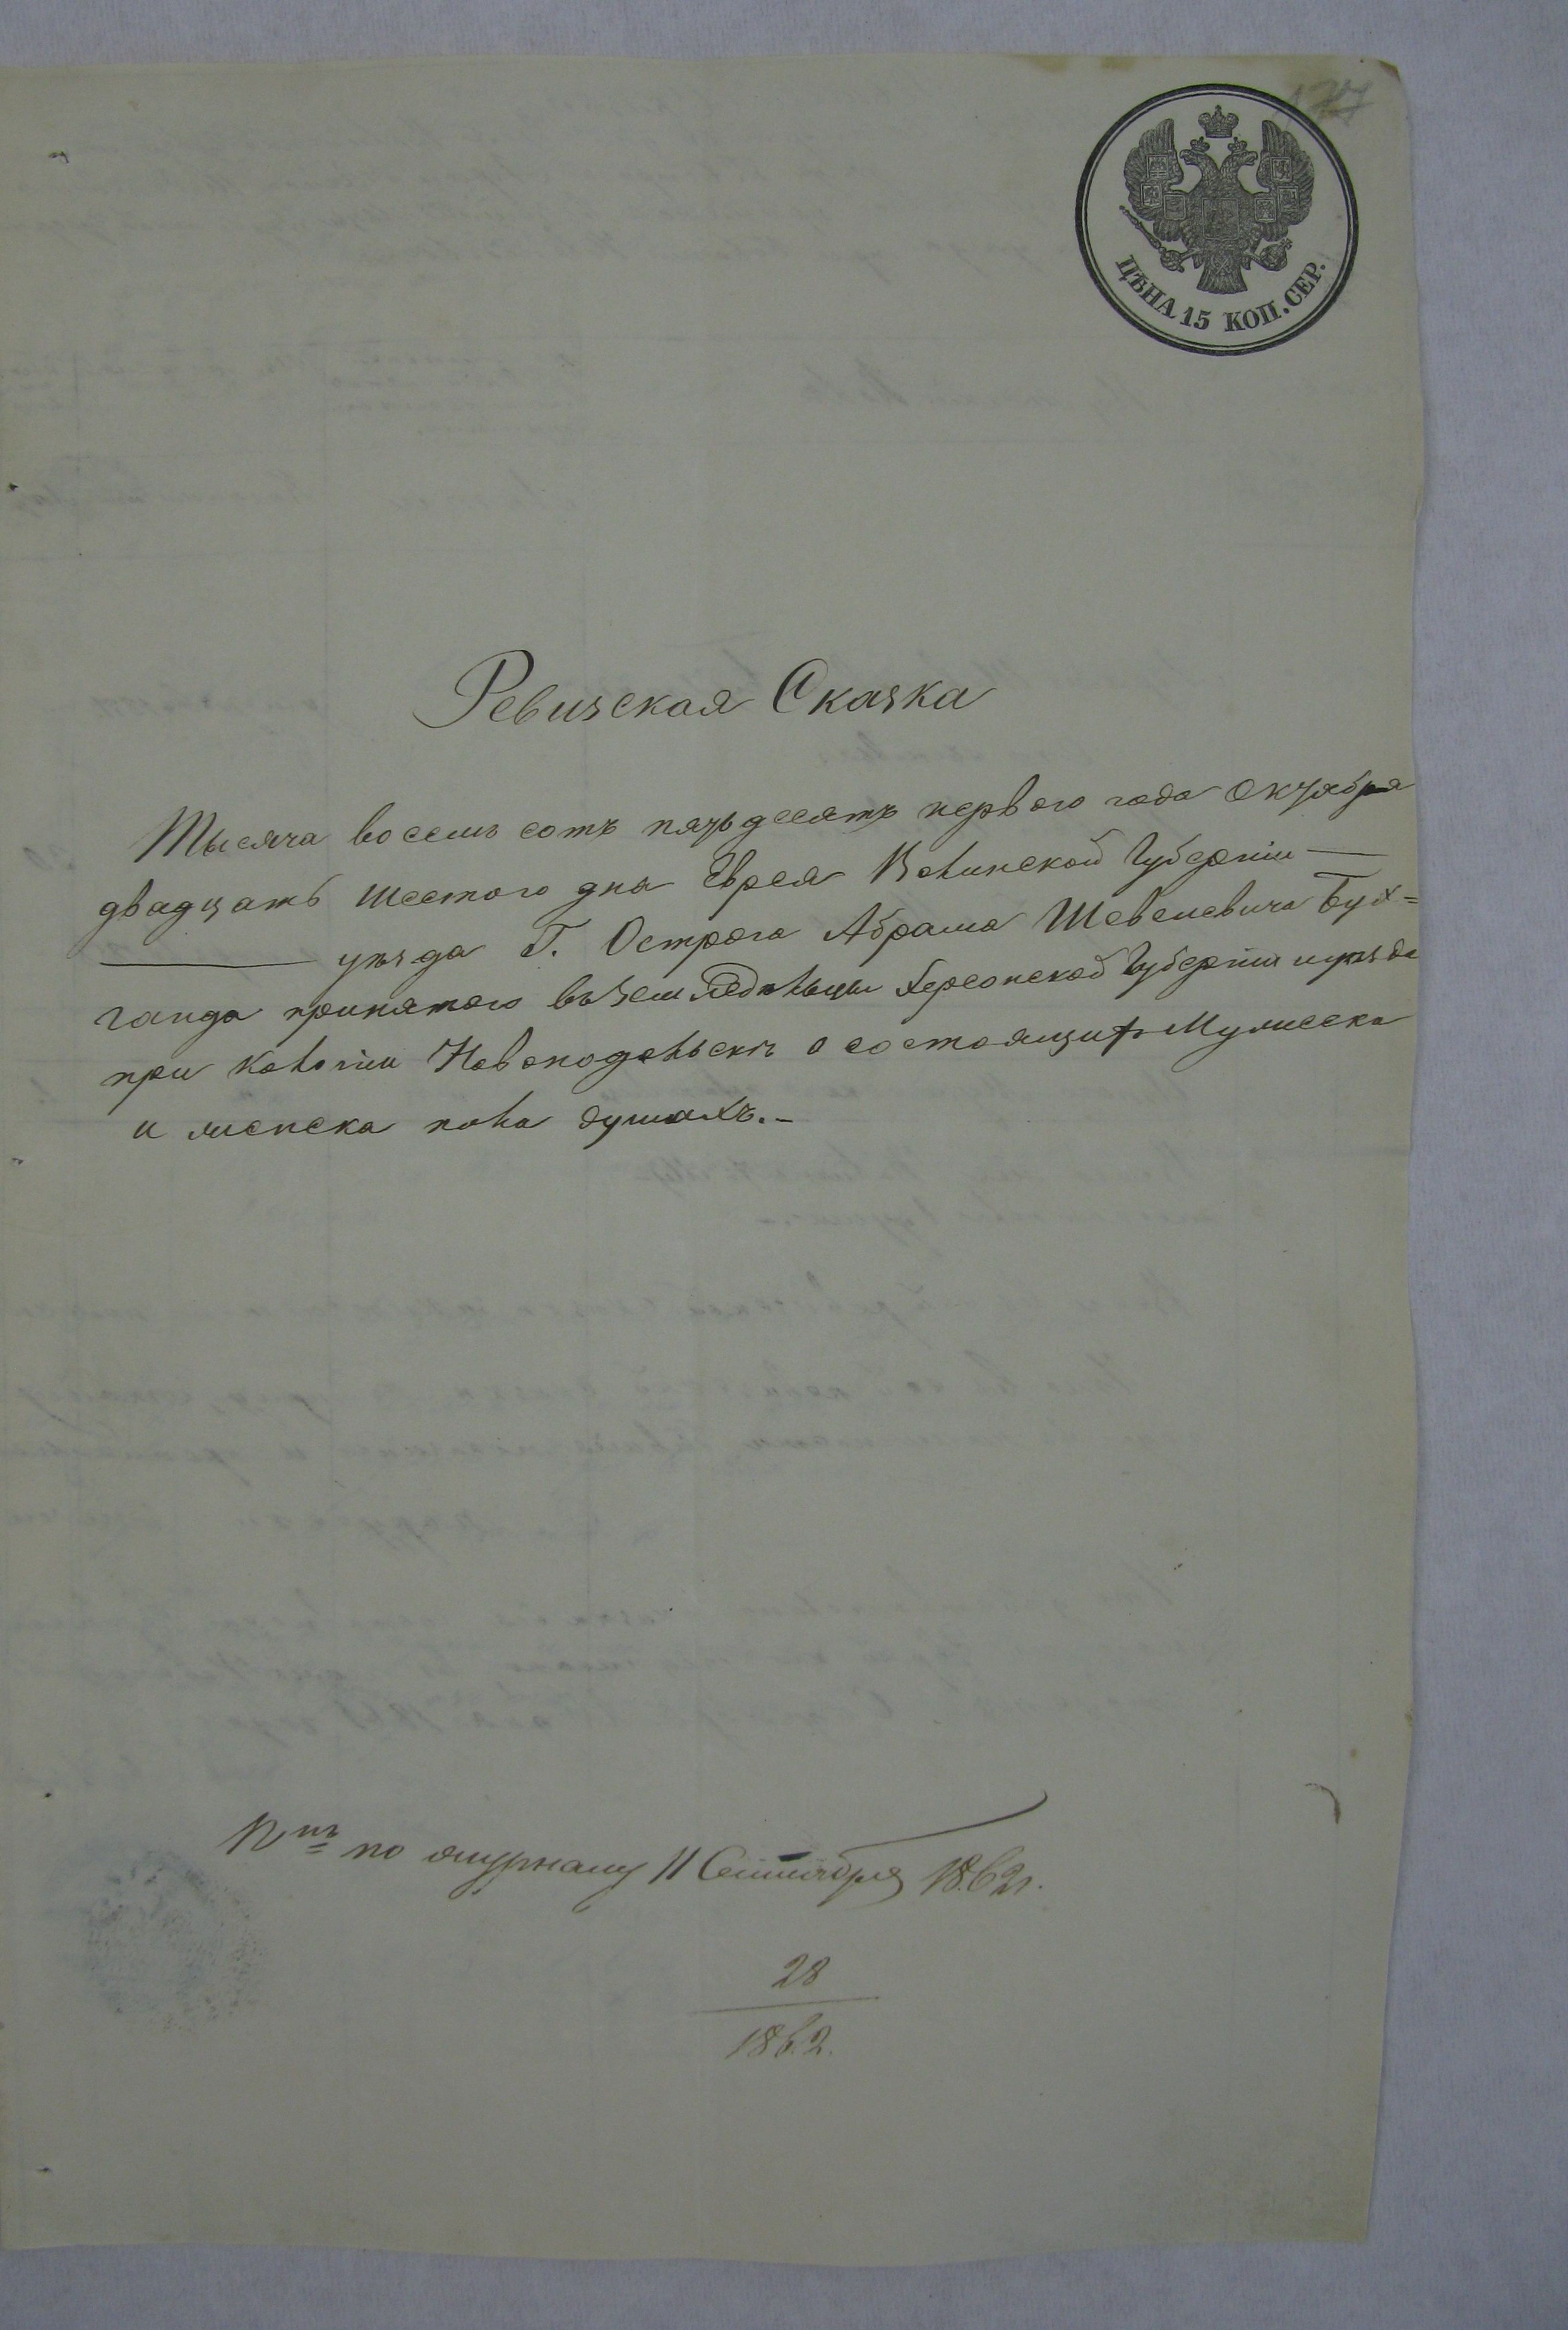 ЦѢНА 15 КОП. СЕР.
Ревизская Сказка
Тысяча восемь сотъ пятьдесятъ первого года октября
двадцать шестого дня Еврея Волинской Губерніи —
— уѣзда Г. Острога Абрама Шевелевича Бух=
ганда принятого въ Земледѣльцы Херсонской Губерніи и уѣзда
при колоніи Новоподольскъ о состоящихъ Мужеска
и женска пола душахъ.-
по журналу 11 Сентября 1862 г.
28
1862.